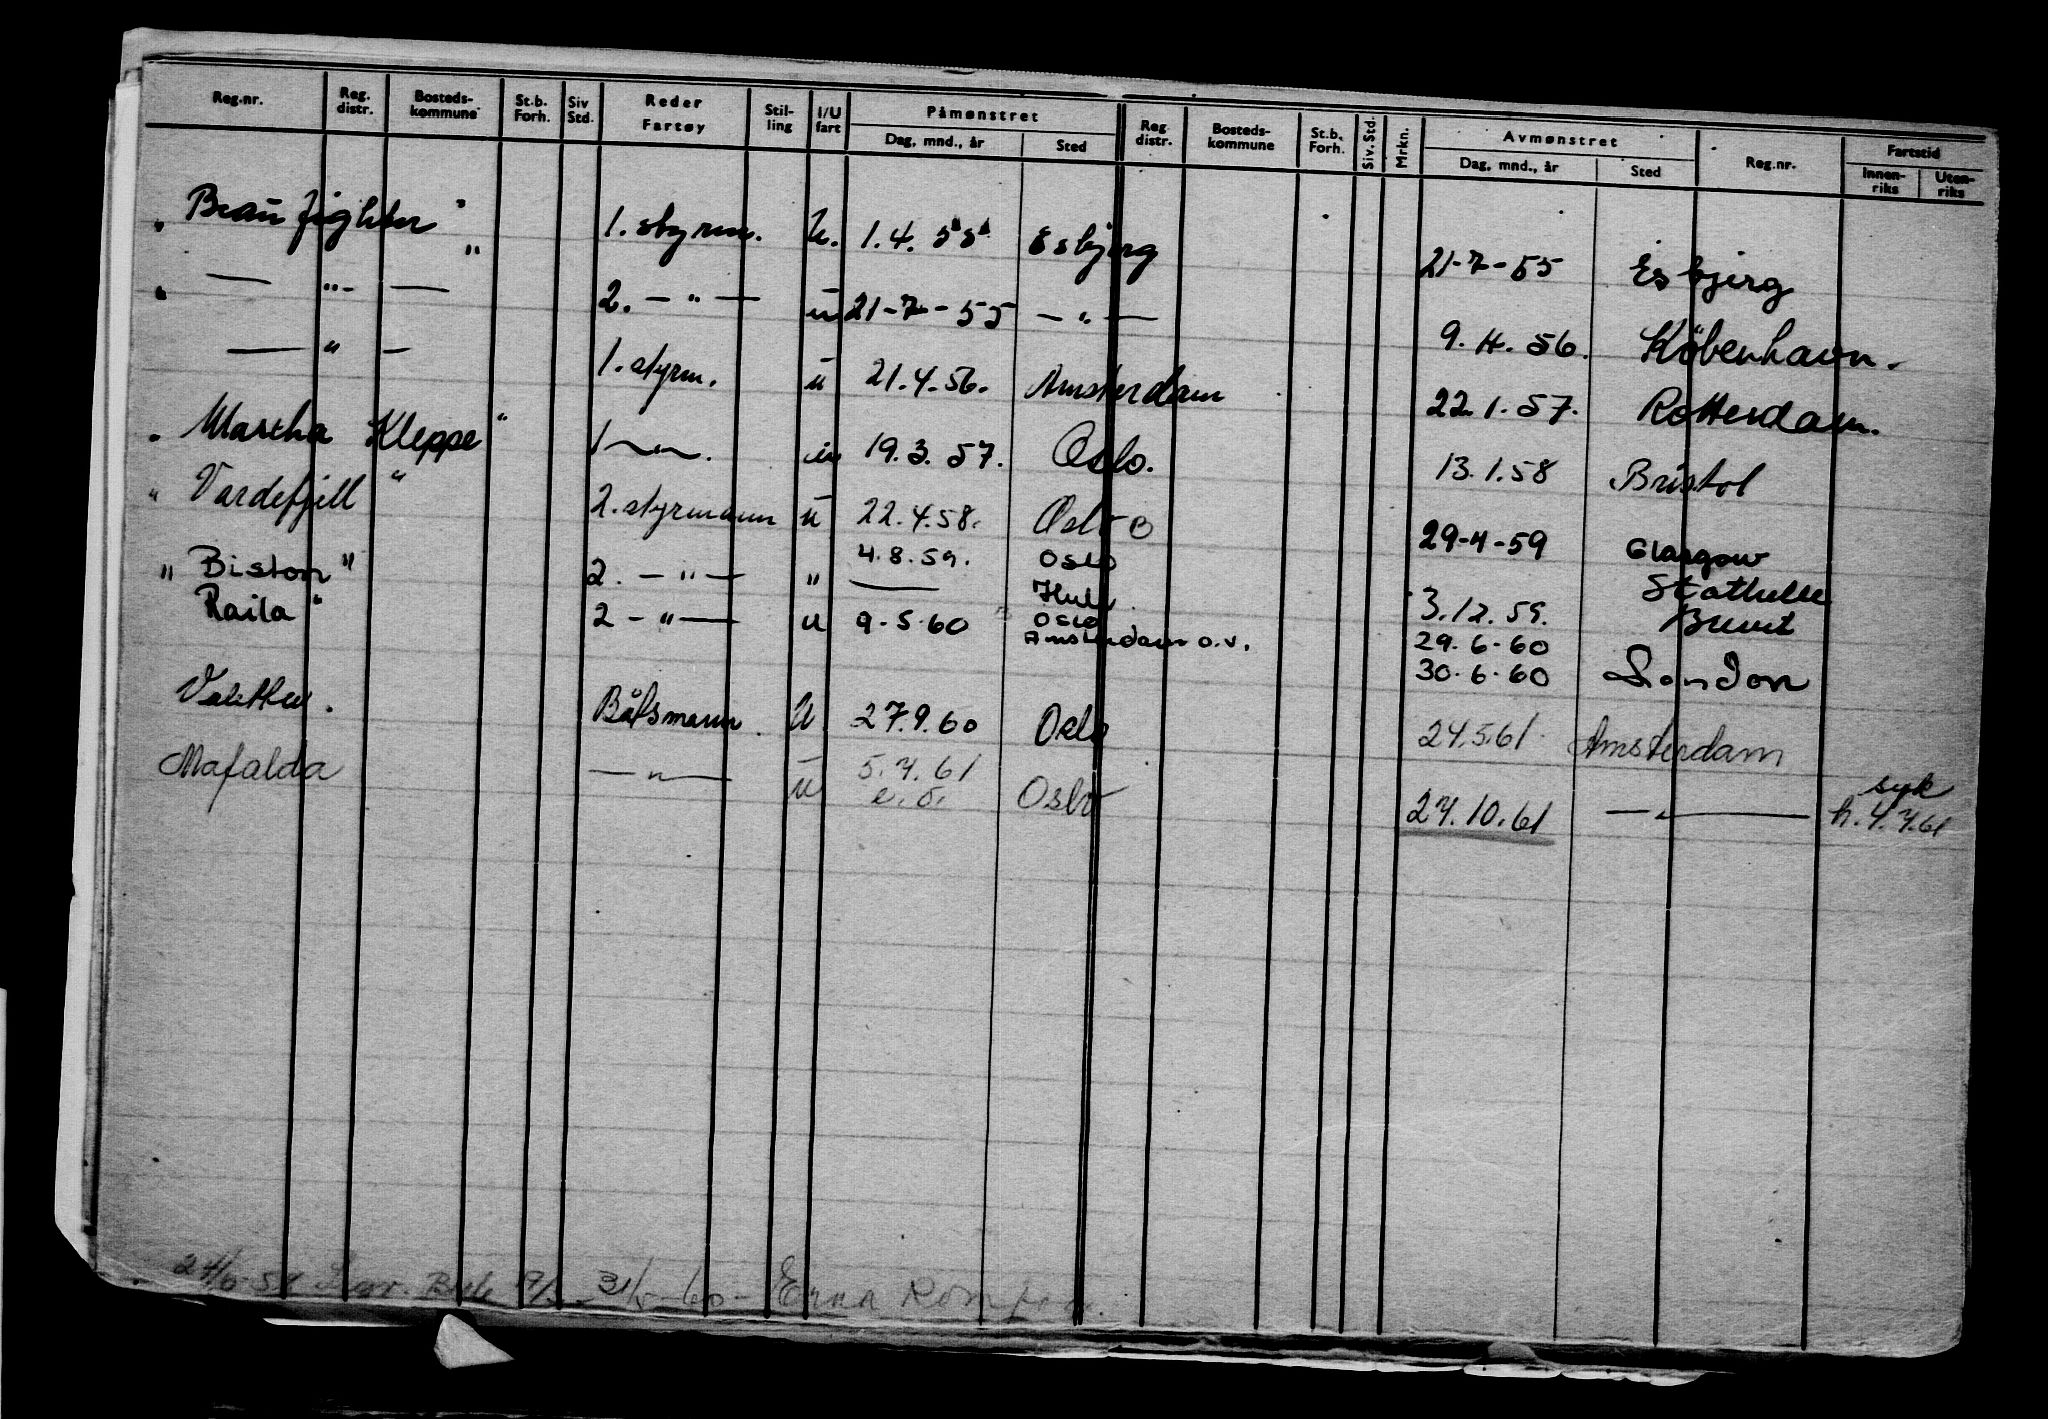 Reg.nr. Reg. distr. Bosteds-kommune St.b. Forh. Siv Std. Reder Fartøy Stil-ling I/U fart Påmønstret Dag, mnd., år Sted Reg distr. Bosteds-kommune St.b. Forh. Siv. Std. Mrkn. Avmønstret Dag, mnd., år Sted Reg.nr. Fartstid Innen-riks Uten-riks
" Beaufighter " 1. styrm. U. 1.4.55 Esbjerg 21-7-55 Esbjerg
" — " — 2. — " — u 21-7-55 — " — 9.4.56. København.
— " — 1. styrm. u 21.4.56. Amsterdam 22.1.57. Rotterdam.
" Martha Kleppe " 1 — " —. u 19.3.57. Oslo. 13.1.58 Bristol
" Vardefjell " 2. styrmann u 22.4.58. Oslo 29-4-59 Glasgow
" Biston " 2. — " — " 4.8.59. Oslo 3.12.59. Stathelle
Raila " 2 — " — u 9-5-60 Oslo Amsterdam o.v. 29.6-60
30.6.60 London
Båtsmann. U 27.9.60 Oslo 24.5.61 Amsterdam
Mafalda — " — u 5.7.61 Oslo 27.10.61 — " — syk
h. 4.7.61